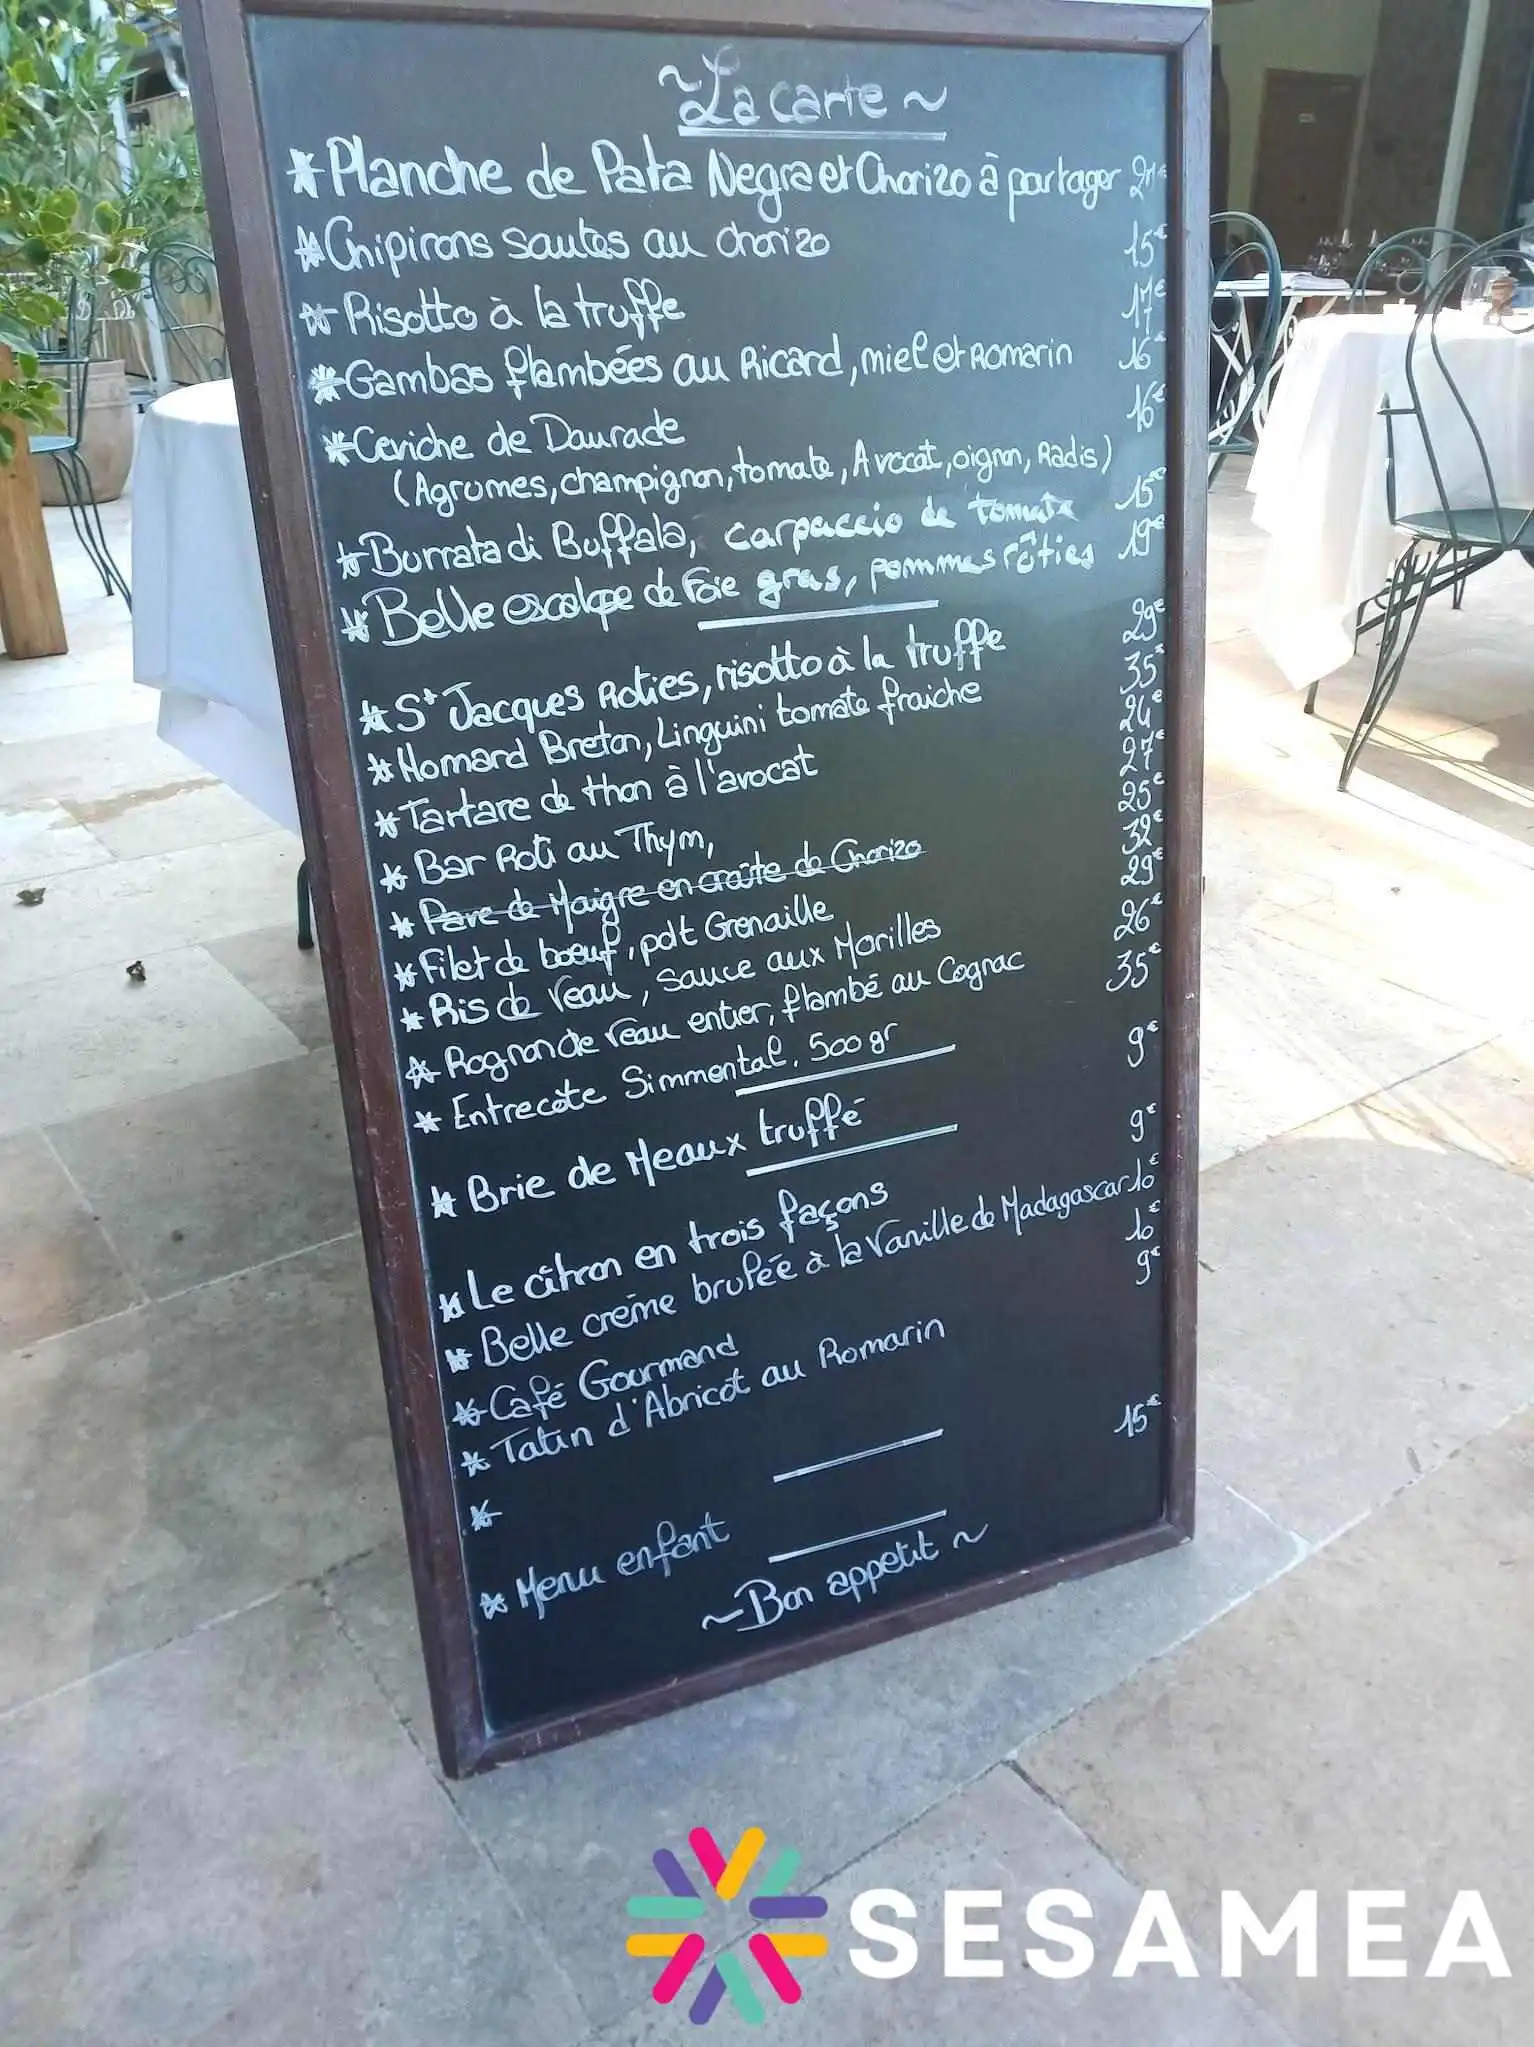 ~ La carte ~
* Planche de Pata Negra et Chorizo à partager 21€
* Chipirons sautés au chorizo 15€
* Risotto à la truffe 17€
* Gambas flambées au Ricard, miel et Romarin 16€
* Ceviche de Daurade 16€
(Agrumes, champignon, tomate, Avocat, oignon, Radis)
* Burrata di Buffala, carpaccio de tomate 15€
* Belle escalope de Foie gras, pommes rôties 19€
* St Jacques Roties, risotto à la truffe 29€
* Homard Breton, Linguini tomate fraiche 35€
* Tartare de thon à l'avocat 24€
* Bar Roti au Thym, 27€
* Pave de Maigre en croûte de Chorizo 25€
* Filet de boeuf, pdt Grenaille 32€
* Ris de veau, Sauce aux Morilles 29€
* Rognon de veau entier, flambé au Cognac 26€
* Entrecôte Simmental, 500 gr 35€
* Brie de Meaux truffé 9€
* Le citron en trois façons 9€
* Belle crème brulée à la Vanille de Madagascar 10€
* Café Gourmand 10€
* Tatin d'Abricot au Romarin 9€
*
* Menu enfant 15€
~ Bon appetit ~
SESAMEA